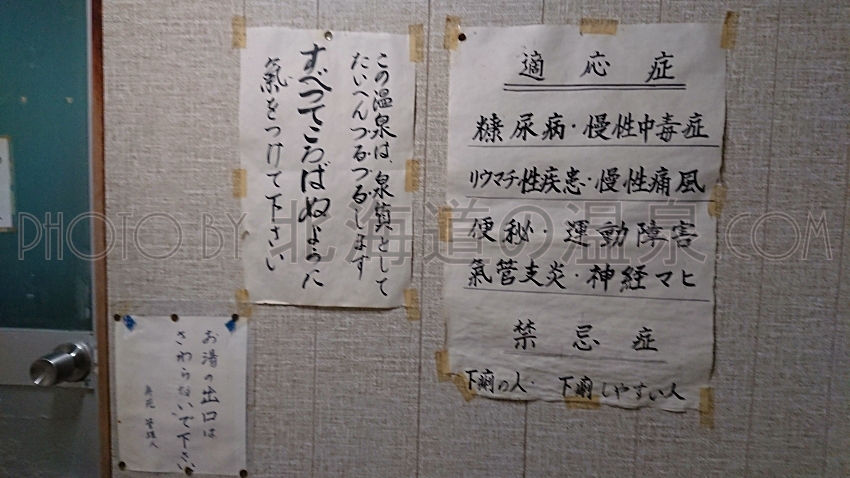 この温泉は、泉質として
たいへんつるつるします
すべってころばぬように
氣をつけて下さい
適応症
糖尿病・慢性中毒症
リウマチ性疾患・慢性痛風
便秘・運動障害
氣管支炎・神経マヒ
禁忌症
下痢の人・下痢しやすい人
お湯の出口は
さわらないで下さい
管理人
PHOTO BY 北海道の温泉.COM